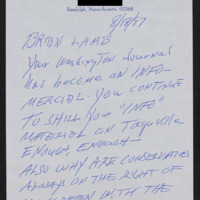 Randolph, Massachusetts 02368
8/19/97
BRIAN LAMB
Your Washington Journal
has become an INFO
MERCIAL. You CONTINUE
TO SHILL YOUR "INFO"
MATERIAL ON Toquville
ENOUGH, ENOUGH
ALSO WHY ARE CONSERVATIVES
ALWAYS ON THE RIGHT OF
WITH THE